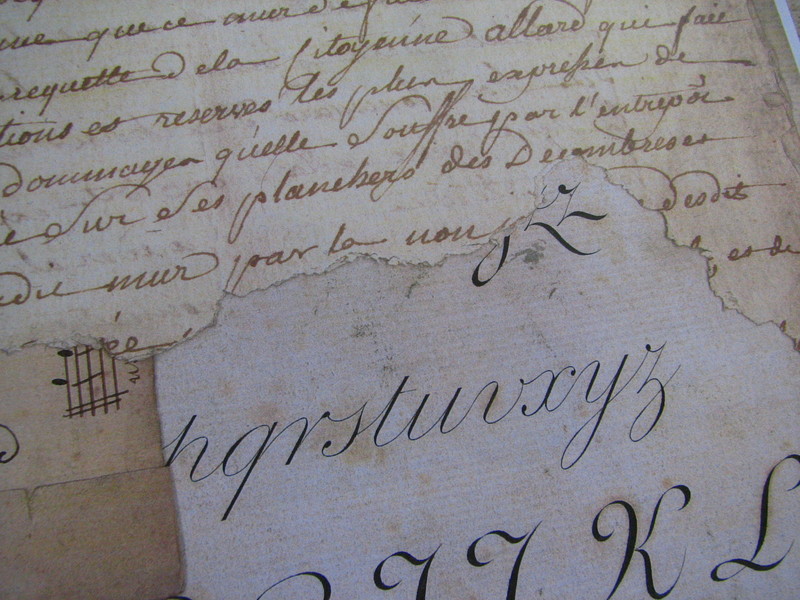 que ce mur de
requette de la Citoyenne allard qui fait
tions et reserves les plus expresses de
dommages qu'elle souffre par l'entrepôt
Sur Ses planchers des Décombres et
mur par la non desdit
et de
Z
pqrstuvxyz
I J K L